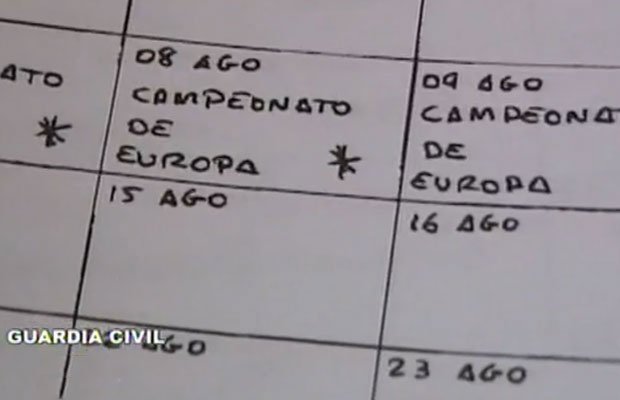 ATO
08 AGO
CAMPEONATO
DE
EUROPA
09 AGO
CAMPEONA
DE
EUROPA
15 AGO
16 AGO
GUARDIA CIVIL
AGO
23 AGO